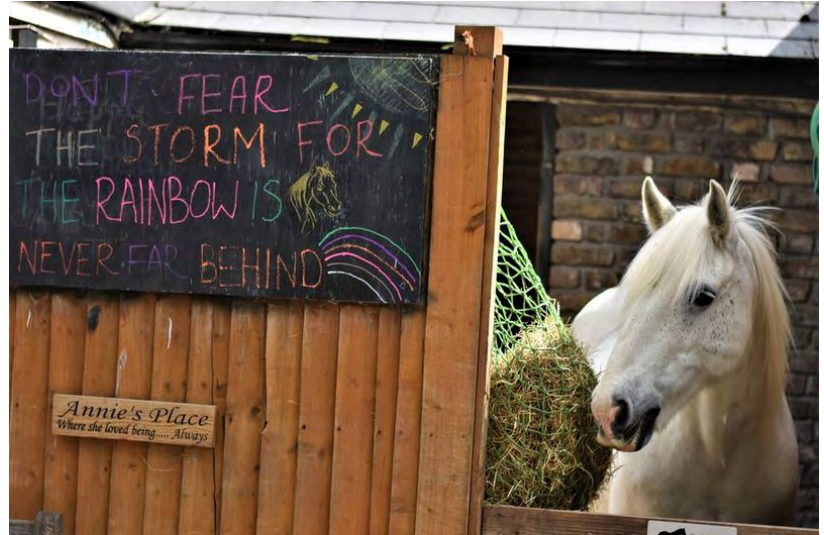 DON'T FEAR
THE STORM FOR
THE RAINBOW IS
NEVER FAR BEHIND
Annie's Place
Where she loved being..... Always